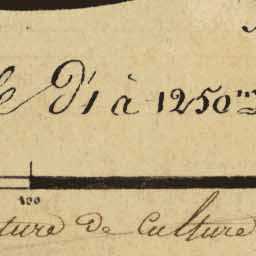 le D'1 à 1250 m
100
ture de Culture